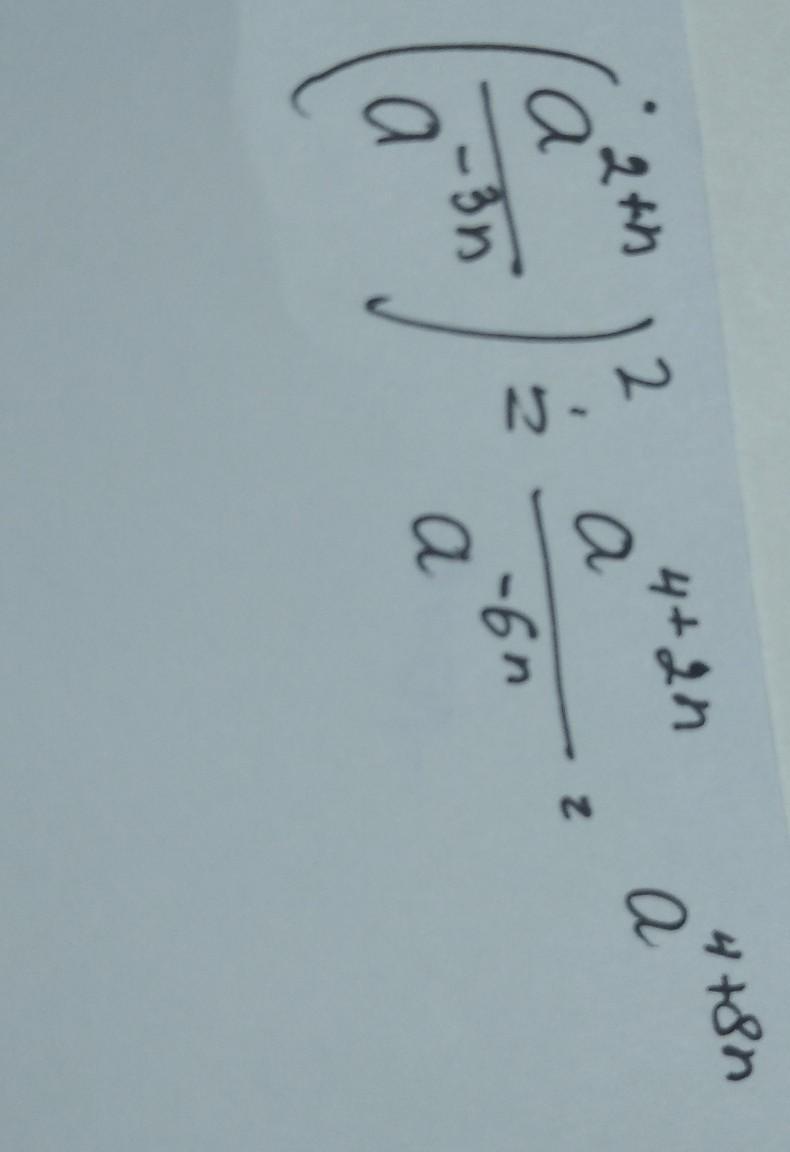 (a^{2+n} / a^{-3n})^2 = a^{4+2n} / a^{-6n} = a^{4+8n}